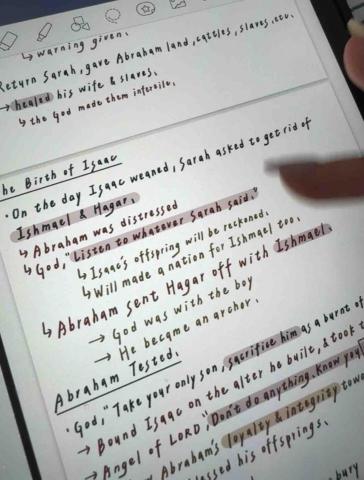 ↳ warning given.
Return Sarah, gave Abraham land, cattles, slaves, etc.
→ healed his wife & slaves.
↳ the God made them infertile.
he Birth of Isaac
• On the day Isaac weaned, Sarah asked to get rid of
Ishmael & Hagar.
↳ Abraham was distressed
↳ God, "Listen to whatever Sarah said."
↳ Isaac's offspring will be reckoned.
↳ Will made a nation for Ishmael too.
↳ Abraham sent Hagar off with Ishmael.
→ God was with the boy
→ He became an archor.
Abraham Tested.
• God, "Take your only son, sacrifice him as a burnt of
→ Bound Isaac on the alter he built, & took
→ Angel of LORD, "Don't do anything. Know you
Abraham's loyalty & integrity tow
lessed his offsprings.
bury